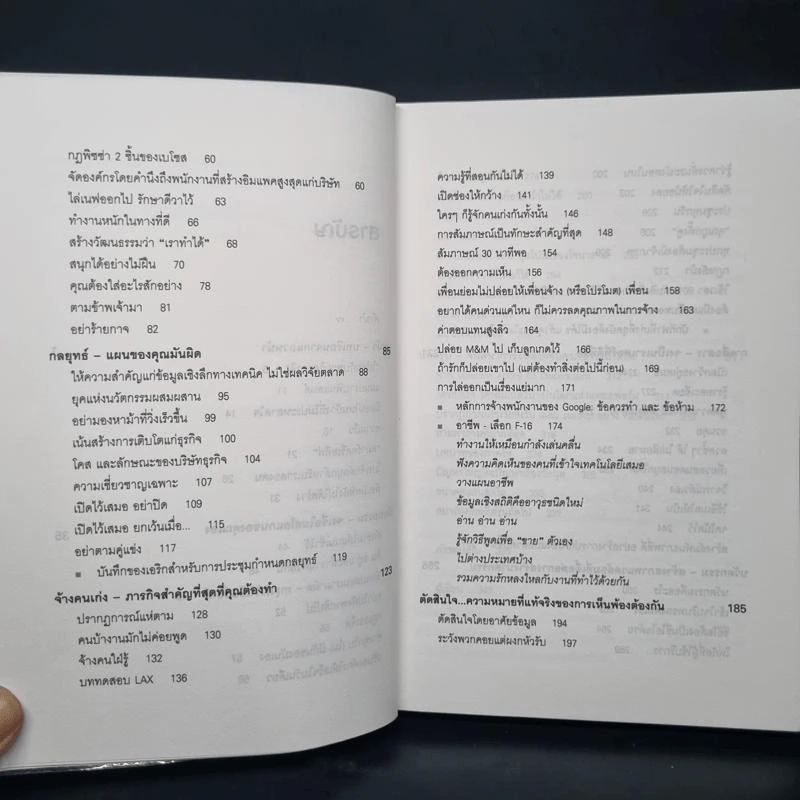 กฎพิซซ่า 2 ชิ้นของเบโซส 60
จัดองค์กรโดยคำนึงถึงพนักงานที่สร้างอิมแพคสูงสุดแก่บริษัท 60
ไล่เนฟออกไป รักษาดีวาไว้ 63
ทำงานหนักในทางที่ดี 66
สร้างวัฒนธรรมว่า "เราทำได้" 68
สนุกได้อย่างไม่ฝืน 70
คุณต้องใส่อะไรสักอย่าง 78
ตามข้าพเจ้ามา 81
อย่าร้ายกาจ 82
กลยุทธ์ – แผนของคุณมันผิด 85
ให้ความสำคัญแก่ข้อมูลเชิงลึกทางเทคนิค ไม่ใช่ผลวิจัยตลาด 88
ยุคแห่งนวัตกรรมผสมผสาน 95
อย่ามองหาม้าที่วิ่งเร็วขึ้น 99
เน้นสร้างการเติบโตแก่ธุรกิจ 100
โคส และลักษณะของบริษัทธุรกิจ 104
ความเชี่ยวชาญเฉพาะ 107
เปิดไว้เสมอ อย่าปิด 109
เปิดไว้เสมอ ยกเว้นเมื่อ... 115
อย่าตามคู่แข่ง 117
■ บันทึกของเอริกสำหรับการประชุมกำหนดกลยุทธ์ 119
จ้างคนเก่ง – ภารกิจสำคัญที่สุดที่คุณต้องทำ 123
ปรากฏการณ์แห่ตาม 128
คนบ้างานมักไม่ค่อยพูด 130
จ้างคนใฝ่รู้ 132
บททดสอบ LAX 136
ความรู้ที่สอนกันไม่ได้ 139
เปิดช่องให้กว้าง 141
ใครๆ ก็รู้จักคนเก่งกันทั้งนั้น 146
การสัมภาษณ์เป็นทักษะสำคัญที่สุด 148
สัมภาษณ์ 30 นาทีพอ 154
ต้องออกความเห็น 156
เพื่อนย่อมไม่ปล่อยให้เพื่อนจ้าง (หรือโปรโมต) เพื่อน 158
อยากได้คนด่วนแค่ไหน ก็ไม่ควรลดคุณภาพในการจ้าง 163
ค่าตอบแทนสูงลิ่ว 164
ปล่อย M&M ไป เก็บลูกเกดไว้ 166
ถ้ารักก็ปล่อยเขาไป (แต่ต้องทำสิ่งต่อไปนี้ก่อน) 169
การไล่ออกเป็นเรื่องแย่มาก 171
■ หลักการจ้างพนักงานของ Google: ข้อควรทำ และ ข้อห้าม 172
■ อาชีพ - เลือก F-16 174
ทำงานให้เหมือนกำลังเล่นคลื่น
ฟังความคิดเห็นของคนที่เข้าใจเทคโนโลยีเสมอ
วางแผนอาชีพ
ข้อมูลเชิงสถิติคืออาวุธชนิดใหม่
อ่าน อ่าน อ่าน
รู้จักวิธีพูดเพื่อ "ขาย" ตัวเอง
ไปต่างประเทศบ้าง
รวมความรักหลงใหลกับงานที่ทำไว้ด้วยกัน
ตัดสินใจ...ความหมายที่แท้จริงของการเห็นพ้องต้องกัน 185
ตัดสินใจโดยอาศัยข้อมูล 194
ระวังพวกคอยแต่ผงกหัวรับ 197